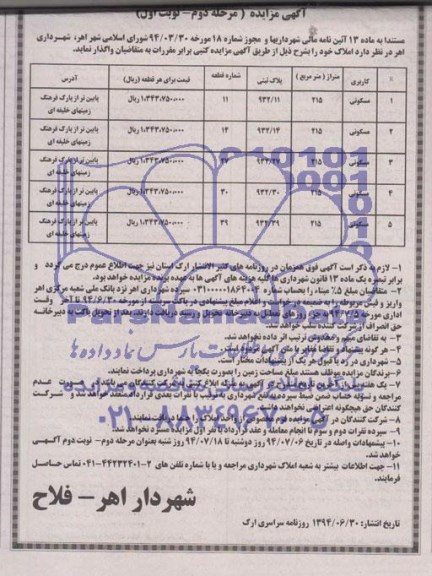 آگهی مزایده ( مرحله دوم- نوبت اول)
مستندا به ماده ۱۳ آئین نامه مالی شهرداریها و مجوز شماره ۱۸ مورخه ۹۴/۰۳/۳۰ شورای اسلامی شهر اهر، شهرداری
اهر در نظر دارد املاک خود را بشرح ذیل از طریق آگهی مزایده کتبی برابر مقررات به متقاضیان واگذار نماید.
کاربری متراژ ( متر مربع ) پلاک ثبتی شماره قطعه قیمت برای هر قطعه (ریال) آدرس
۱ مسکونی ۲۱۵ ۹۳۲/۱۱ ۱۱ ۱،۳۴۳،۷۵۰،۰۰۰ ریال پایین تر از پارک فرهنگ زمینهای خلیفه ای
۲ مسکونی ۲۱۵ ۹۳۲/۱۴ ۱۴ ۱،۳۴۳،۷۵۰،۰۰۰ ریال پایین تر از پارک فرهنگ زمینهای خلیفه ای
۳ مسکونی ۲۱۵ ۹۳۲/۲۷ ۲۷ ۱،۳۴۳،۷۵۰،۰۰۰ ریال پایین تر از پارک فرهنگ زمینهای خلیفه ای
۴ مسکونی ۲۱۵ ۹۳۲/۳۰ ۳۰ ۱،۳۴۳،۷۵۰،۰۰۰ ریال پایین تر از پارک فرهنگ زمینهای خلیفه ای
۵ مسکونی ۲۱۵ ۹۳۲/۳۹ ۳۹ ۱،۳۴۳،۷۵۰،۰۰۰ ریال پایین تر از پارک فرهنگ زمینهای خلیفه ای
۱- لازم به ذکر است آگهی فوق همزمان در روزنامه های کثیر الانتشار ارک استان نیز جهت اطلاع عموم درج می گردد و
برابر تبصره یک ماده ۱۳ قانون شهرداری ها کلیه هزینه های آگهی ها به عهده برنده مزایده خواهد بود.
۲- متقاضیان مبلغ ۵٪ مبناء را بحساب شماره سپرده شهرداری اهر نزد بانک ملی شعبه مرکزی اهر
واریز و فیش مربوطه را به ضمیمه درخواست و اعلام مبلغ پیشنهادی در پاکت سربسته از مورخه ۹۴/۶/۳۰ تا آخر وقت
اداری مورخه به جز روزهای تعطیل به دبیرخانه تحویل و رسید دریافت دارند. بعد از تحویل پاکت به دبیرخانه
حق انصراف از شرکت کننده سلب خواهد شد.
۳- به تقاضای مبهم و مخدوش ترتیب اثر داده نخواهد شد.
۴- هر گونه پیشنهاد و تقاضا مغایر با متن آگهی
۵- شهرداری در رد یا قبول هر یک از پیشنهادات مختار است.
۶- برندگان مزایده موظف هستند مبلغ مساحت زمین را بصورت یکجا به شهرداری پرداخت نمایند.
۷- یک هفته پس از
مراجعه و تسویه حساب ضمن ضبط سپرده به نفع شهرداری به ترتیب با نفرات بعدی قرارداد منعقد خواهد شد و شرکت
کنندگان حق هیچگونه اعتراضی نخواهند داشت.
۸- شرکت کنندگان در
۹- سپرده نفرات دوم و سوم تا انجام معامله و عقد قرارداد با نفر اول مسترد نخواهد شد.
۱۰- پیشنهادات واصله در تاریخ ۹۴/۰۷/۰۶ روز دوشنبه تا ۹۴/۰۷/۱۸ روز شنبه بعنوان مرحله دوم- نوبت دوم آگهی
خواهد شد.
۱۱- جهت اطلاعات بیشتر به شعبه املاک شهرداری مراجعه و یا با شماره تلفن های ۲-۰۴۱-۴۴۲۳۲۴۰۱ تماس حاصل
فرمایند.
شهردار اهر- فلاح
تاریخ انتشار: ۱۳۹۴/۰۶/۳۰ روزنامه سراسری ارک
ParsNamadData
پارس نماد داده‌ها
۰۲۱-۸۸۳۴۹۶۷۰-۵